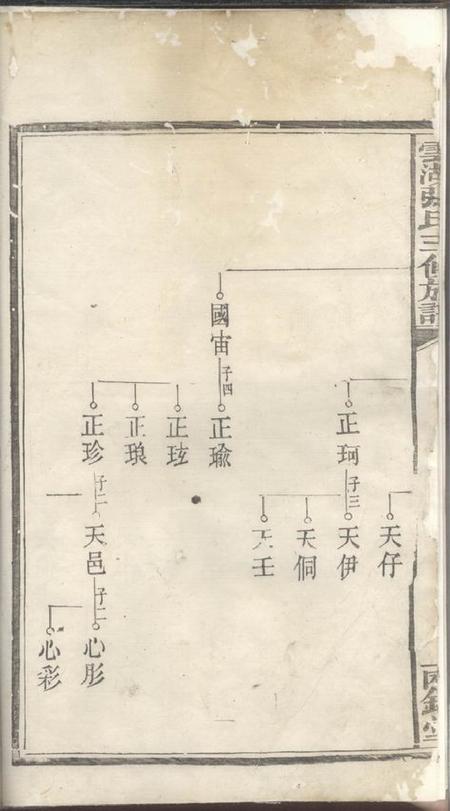 雲湖張氏三修族譜
天仔
正珂
子三
天伊
天侗
天玊
國宙
子四
正瑜
正玹
正琅
正珍
子二
天邑
子二
心彤
心彩